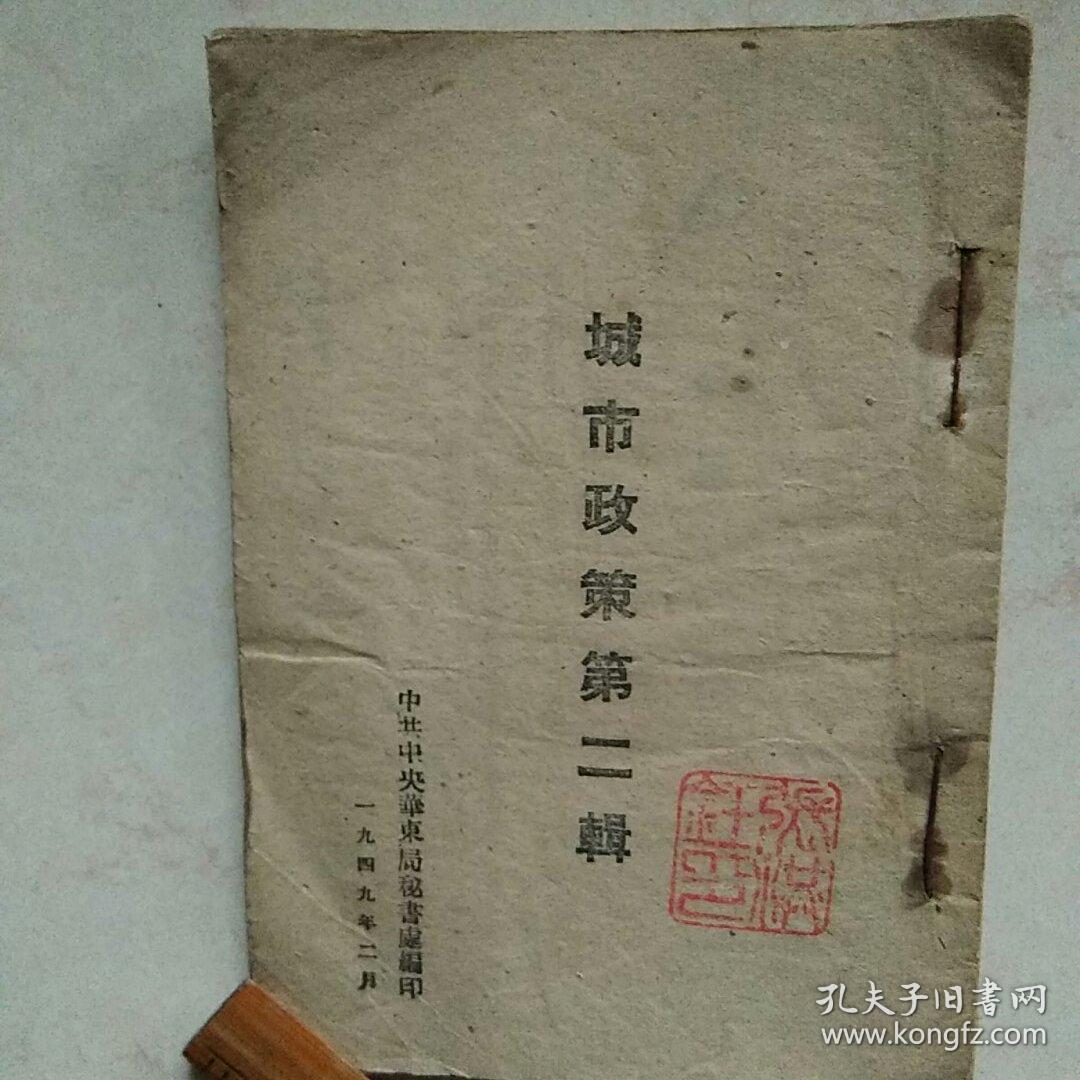 城市政策第二輯
中共中央華東局秘書處編印
一九四九年二月
張洪
孔夫子旧書网
www.kongfz.com